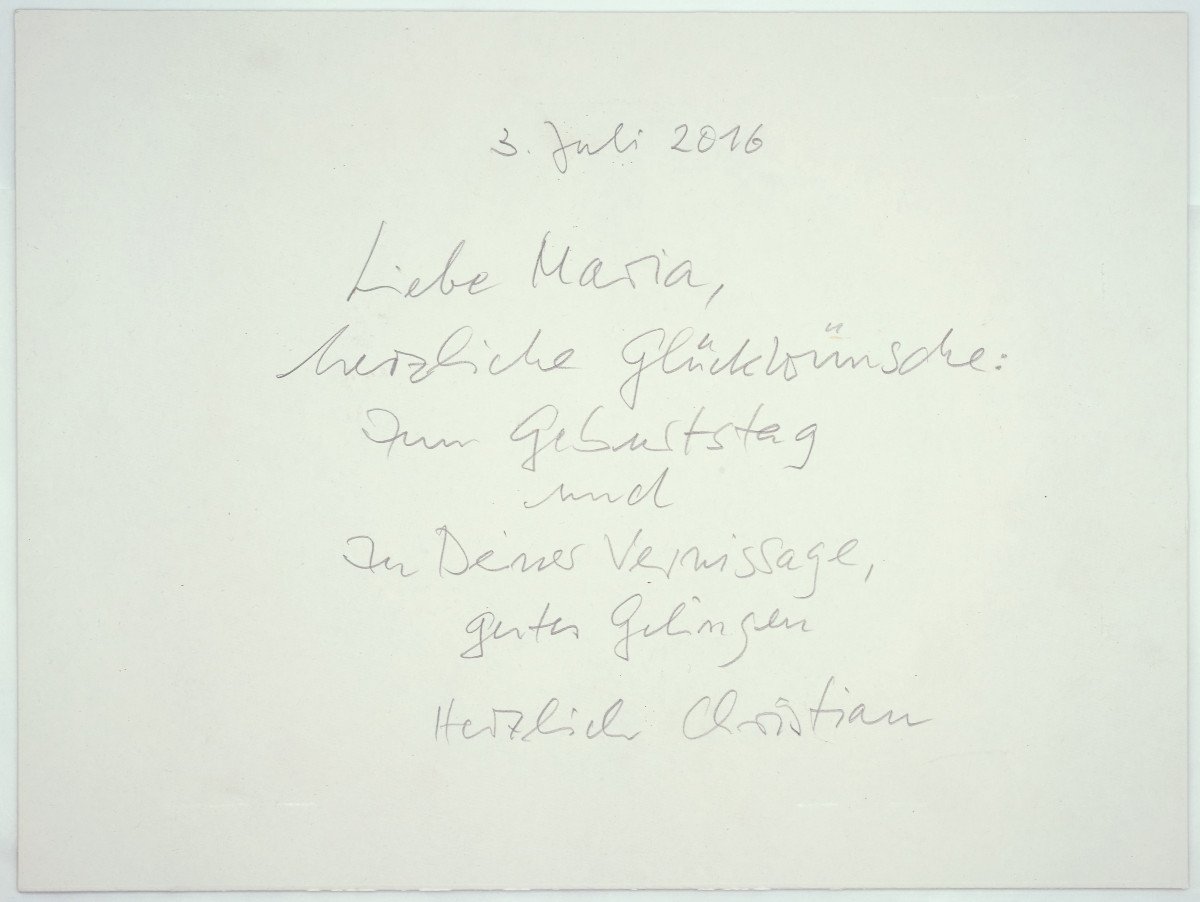 3. Juli 2016
Liebe Maria,
herzliche Glückwünsche:
Zum Geburtstag
und
Zu Deiner Vernissage,
gutes Gelingen
Herzlich Christian